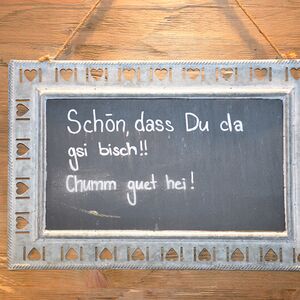 Schön, dass Du da
gsi bisch!!
Chumm guet hei!